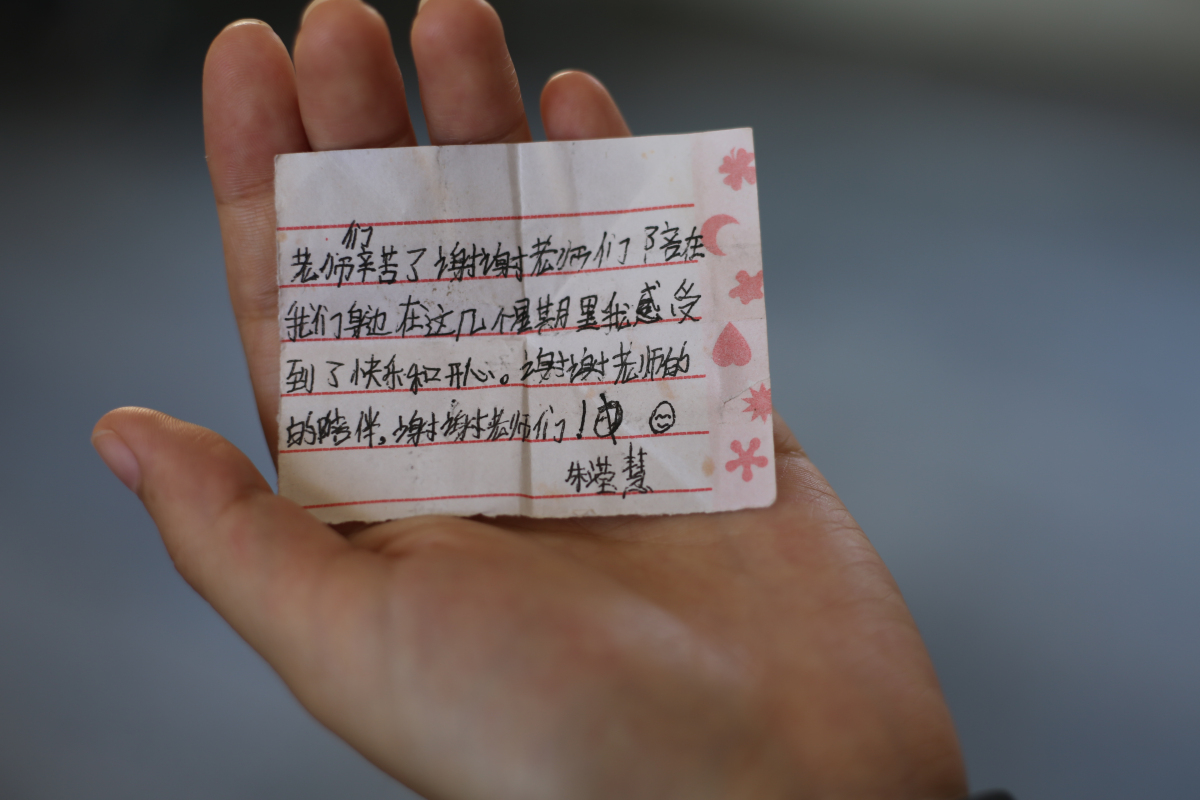 老师们辛苦了谢谢老师们陪在
我们身边在这几个星期里我感受
到了快乐和开心。谢谢老师的
的陪伴,谢谢老师们!
朱滢慧